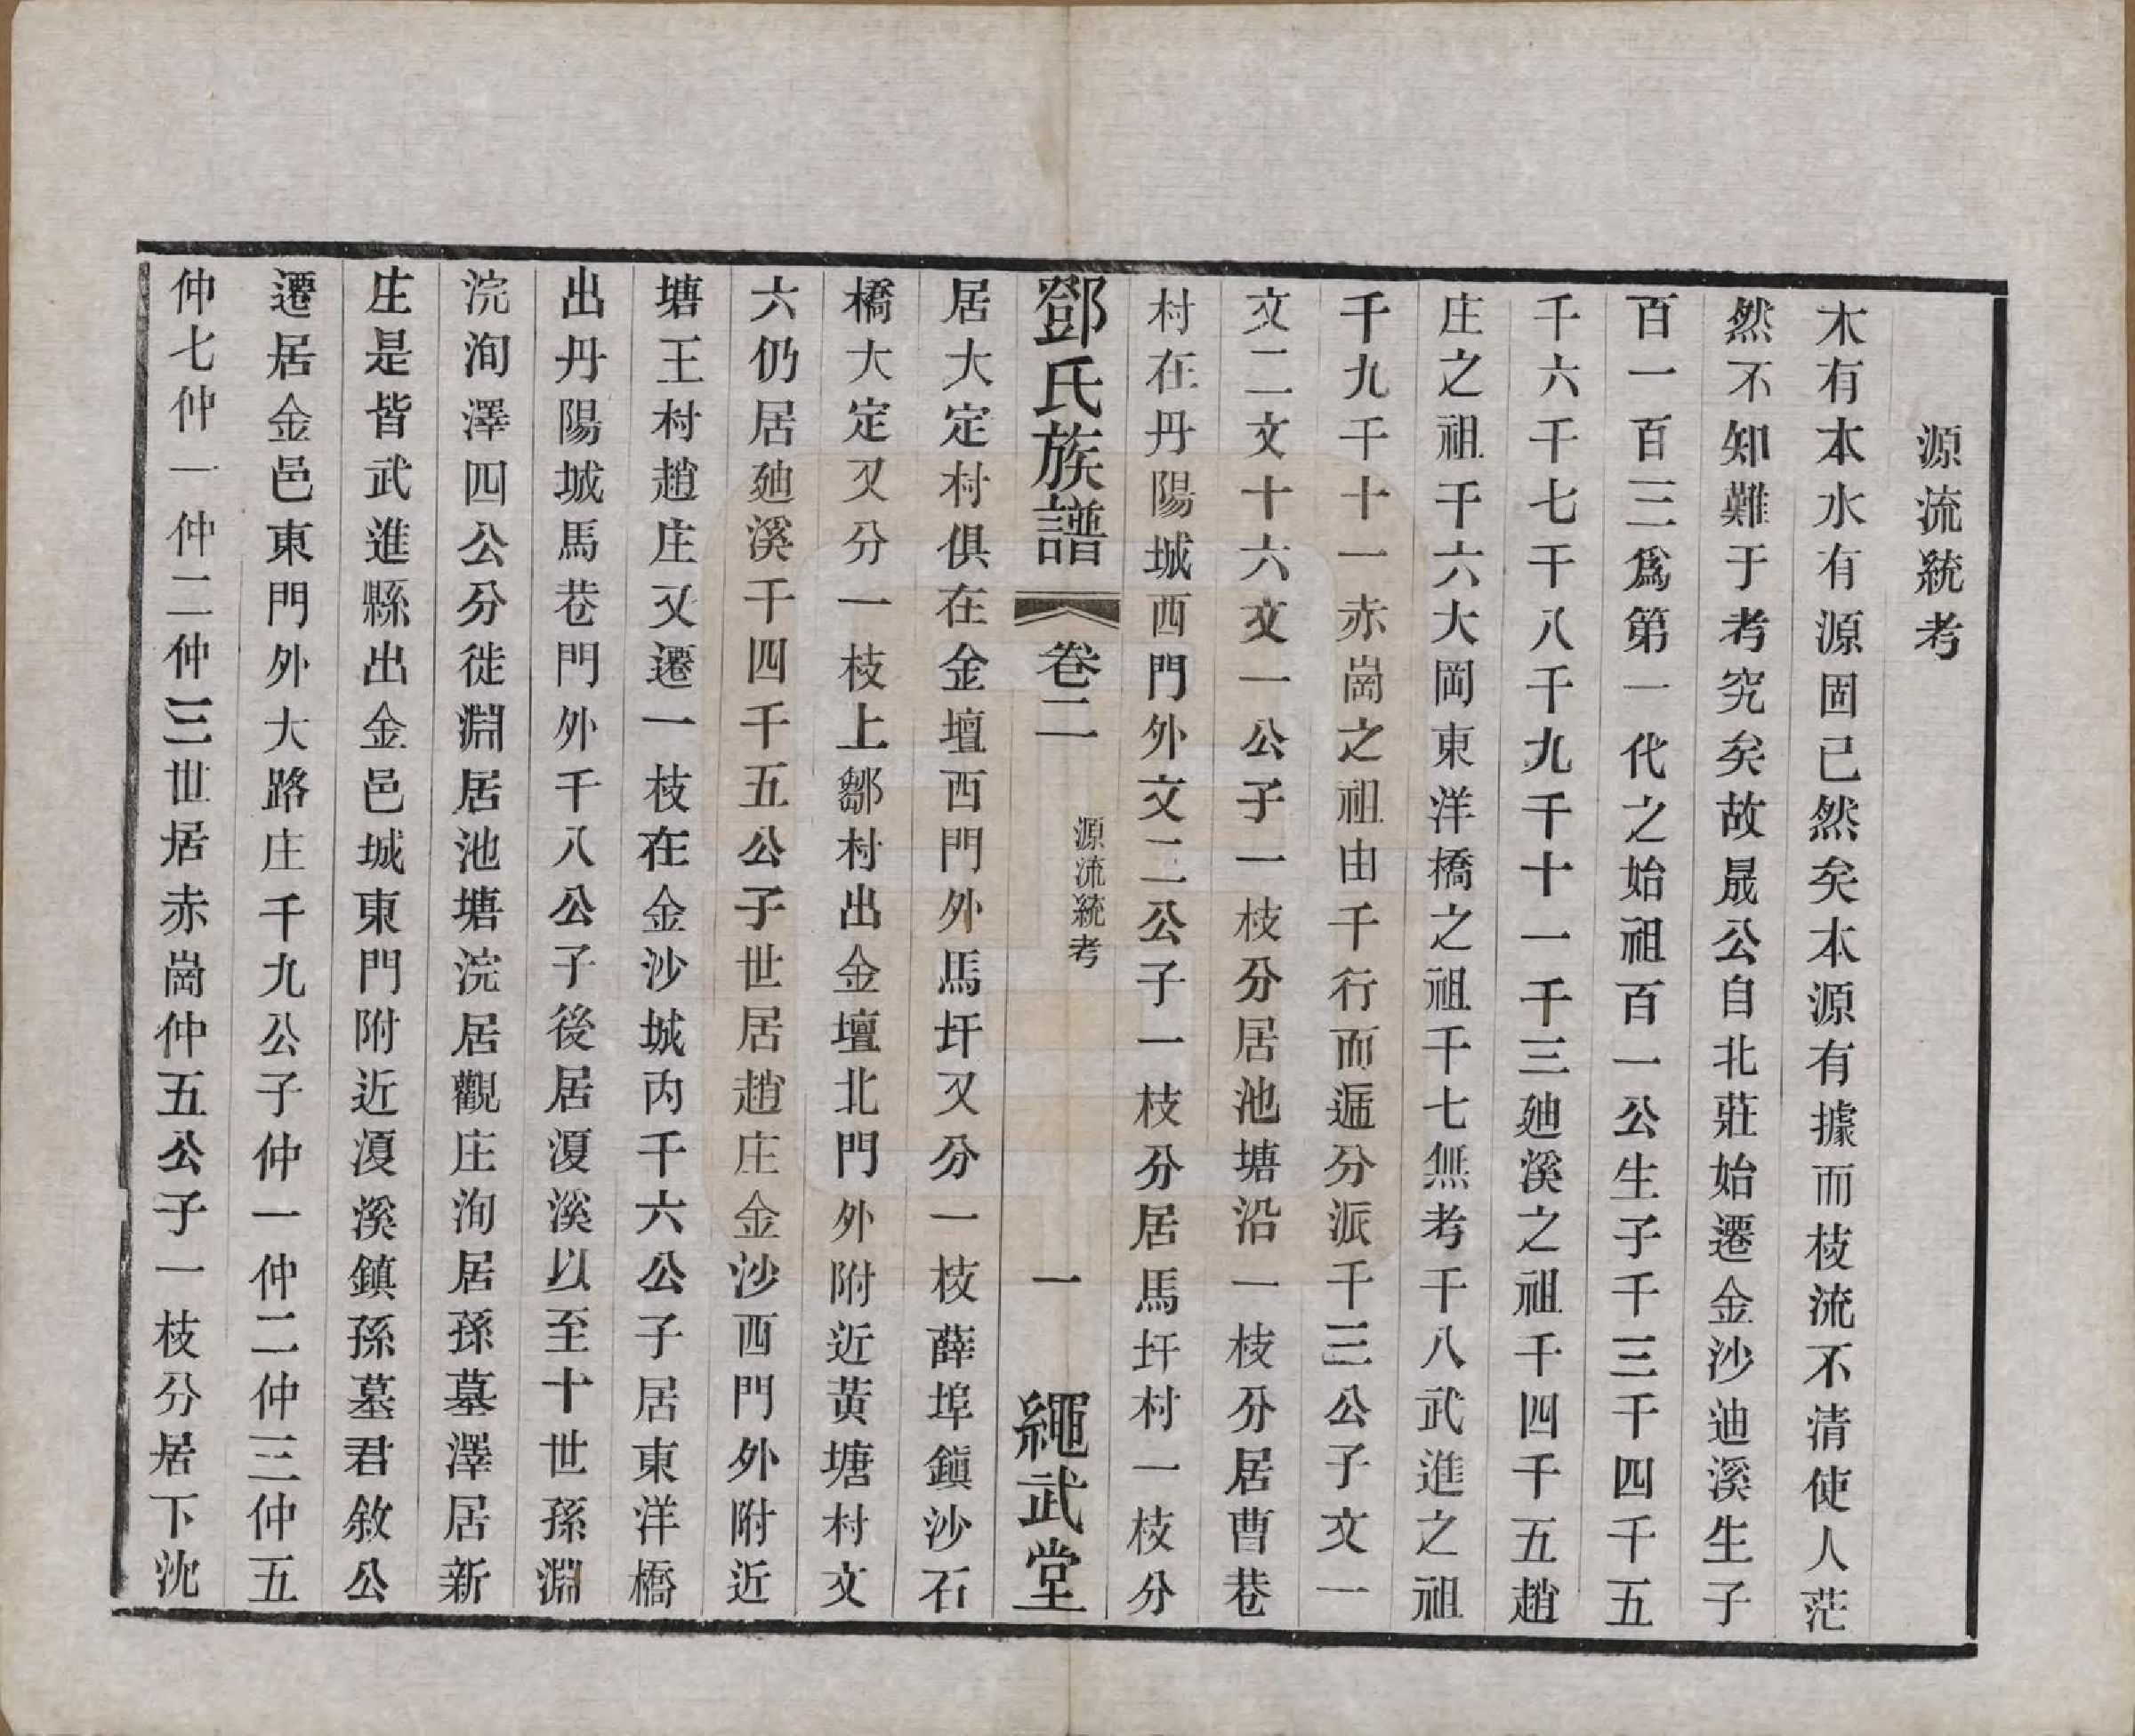 源流統考
木有本水有源固已然矣本源有據而枝流不清使人茫
然不知難于考究矣故晟公自北莊始遷金沙迪溪生子
百一百三爲第一代之始祖百一公生子千三千四千五
千六千七千八千九千十一千三廸溪之祖千四千五趙
庄之祖千六大岡東洋橋之祖千七無考千八武進之祖
千九千十一赤崗之祖由千行而遞分派千三公子文一
文二文十六文一公子一枝分居池塘沿一枝分居曹巷
村在丹陽城西門外文二公子一枝分居馬圩村一枝分
鄧氏族譜 卷二 源流統考 一 繩武堂
居大定村俱在金壇西門外馬圩又分一枝薛埠鎭沙石
橋大定又分一枝上鄒村出金壇北門外附近黃塘村文
六仍居廸溪千四千五公子世居趙庄金沙西門外附近
塘王村趙庄又遷一枝在金沙城內千六公子居東洋橋
出丹陽城馬巷門外千八公子後居湲溪以至十世孫淵
浣洵澤四公分徙淵居池塘浣居觀庄洵居孫墓澤居新
庄是皆武進縣出金邑城東門附近湲溪鎮孫墓君敘公
遷居金邑東門外大路庄千九公子仲一仲二仲三仲五
仲七仲一仲二仲三世居赤崗仲五公子一枝分居下沈